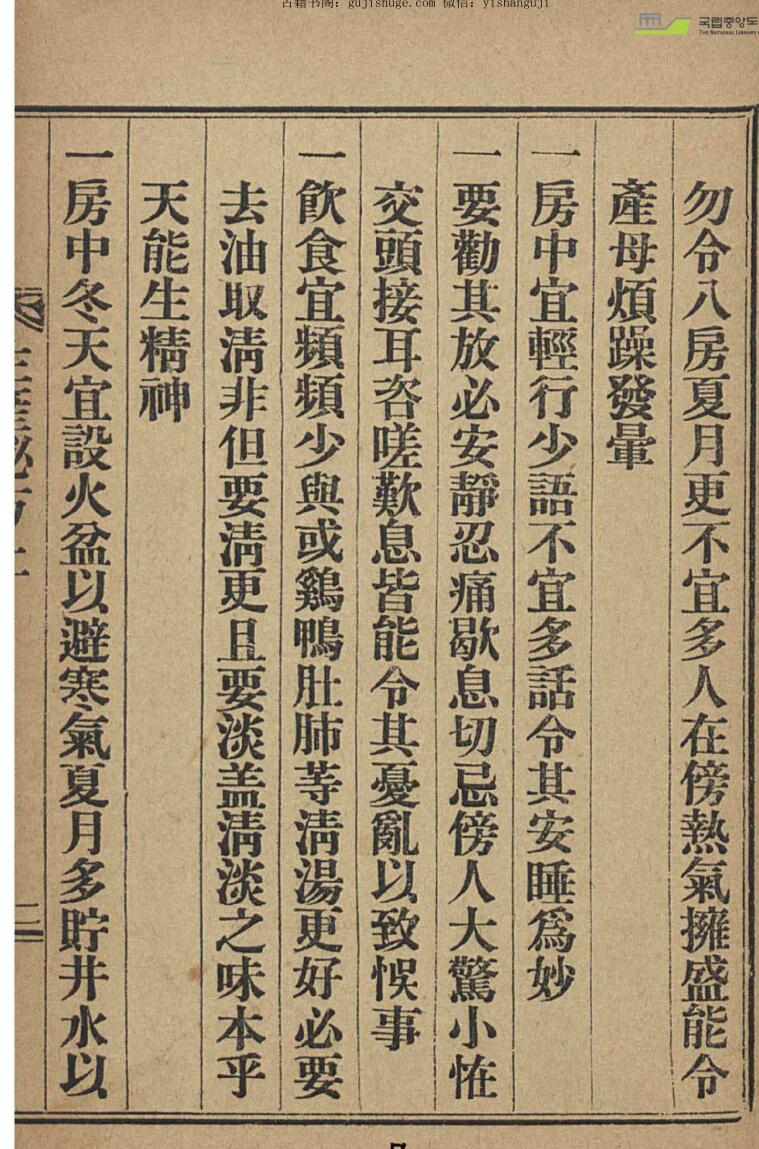 古籍书阁：gujishuge.com 微信：yishanguji
국립중앙도
THE NATIONAL LIBRARY
勿令入房夏月更不宜多人在傍熱氣擁盛能令
產母煩躁發暈
一房中宜輕行少語不宜多話令其安睡爲妙
一要勸其放心安靜忍痛歇息切忌傍人大驚小恠
交頭接耳咨嗟歎息皆能令其憂亂以致悞事
一飮食宜頻頻少與或鷄鴨肚肺等淸湯更好必要
去油取淸非但要淸更且要淡盖淸淡之味本乎
天能生精神
一房中冬天宜設火盆以避寒氣夏月多貯井水以
二
7